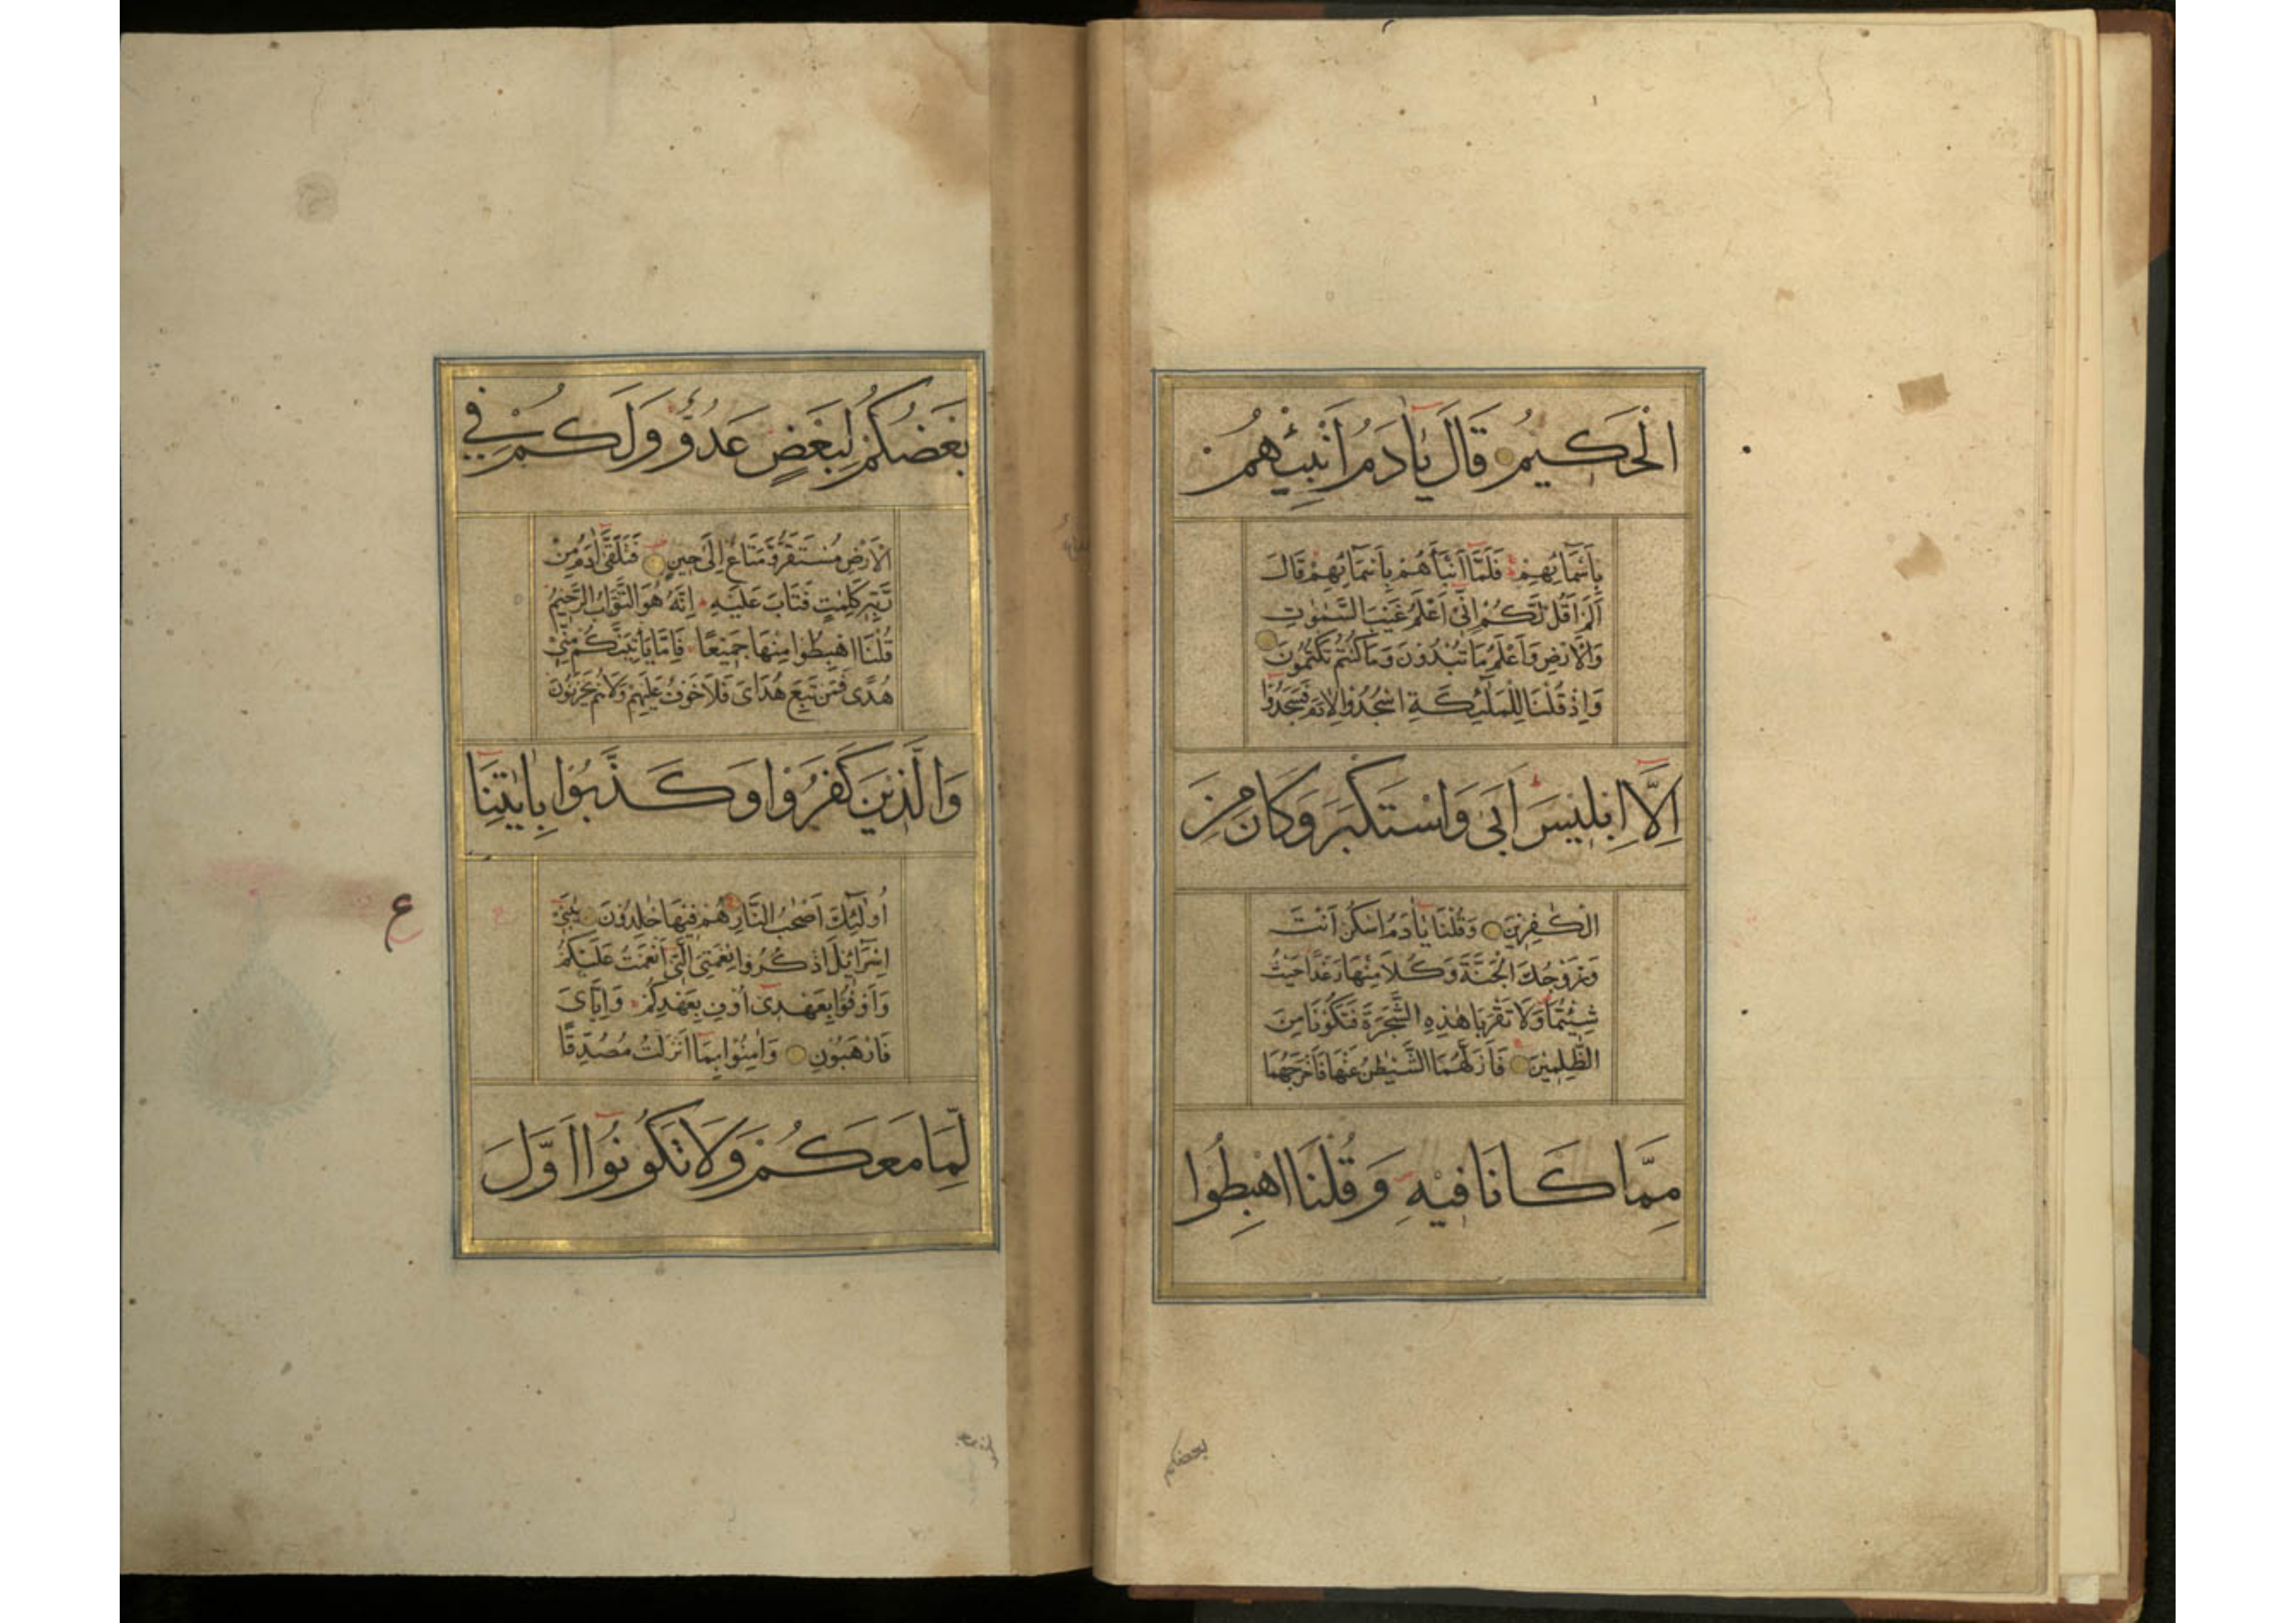 الْحَكِيمُ قَالَ يٰادَمُ اَنْبِئْهُمْ
بِاَسْمَائِهِمْ فَلَمَّا اَنْبَأَهُمْ بِاَسْمَائِهِمْ قَالَ
اَلَمْ اَقُلْ لَكُمْ اِنِّى اَعْلَمُ غَيْبَ السَّمٰوٰتِ
وَالْاَرْضِ وَاَعْلَمُ مَا تُبْدُوْنَ وَمَا كُنْتُمْ تَكْتُمُوْنَ
وَاِذْ قُلْنَا لِلْمَلٰئِكَةِ اسْجُدُوْا لِاٰدَمَ فَسَجَدُوْا
اِلَّا اِبْلِيْسَ اَبٰى وَاسْتَكْبَرَ وَكَانَ مِنَ
الْكٰفِرِيْنَ وَقُلْنَا يٰادَمُ اسْكُنْ اَنْتَ
وَزَوْجُكَ الْجَنَّةَ وَكُلَا مِنْهَا رَغَدًا حَيْثُ
شِئْتُمَا وَلَا تَقْرَبَا هٰذِهِ الشَّجَرَةَ فَتَكُوْنَا مِنَ
الظّٰلِمِيْنَ فَاَزَلَّهُمَا الشَّيْطٰنُ عَنْهَا فَاَخْرَجَهُمَا
مِمَّا كَانَا فِيْهِ وَقُلْنَا اهْبِطُوْا
بعضكم
بَعْضُكُمْ لِبَعْضٍ عَدُوٌّ وَلَكُمْ فِي
الْاَرْضِ مُسْتَقَرٌّ وَمَتَاعٌ اِلٰى حِيْنٍ فَتَلَقّٰى اٰدَمُ مِنْ
رَّبِّهٖ كَلِمٰتٍ فَتَابَ عَلَيْهِ اِنَّهُ هُوَ التَّوَّابُ الرَّحِيْمُ
قُلْنَا اهْبِطُوْا مِنْهَا جَمِيْعًا فَاِمَّا يَاْتِيَنَّكُمْ مِنِّيْ
هُدًى فَمَنْ تَبِعَ هُدَاىَ فَلَا خَوْفٌ عَلَيْهِمْ وَلَا هُمْ يَحْزَنُوْنَ
وَالَّذِيْنَ كَفَرُوْا وَكَذَّبُوْا بِاٰيٰتِنَا
ع
اُولٰئِكَ اَصْحٰبُ النَّارِ هُمْ فِيْهَا خٰلِدُوْنَ يٰبَنِىْ
اِسْرَائِيْلَ اذْكُرُوْا نِعْمَتِىَ الَّتِىْ اَنْعَمْتُ عَلَيْكُمْ
وَاَوْفُوْا بِعَهْدِىْ اُوْفِ بِعَهْدِكُمْ وَاِيَّاىَ
فَارْهَبُوْنِ وَاٰمِنُوْا بِمَا اَنْزَلْتُ مُصَدِّقًا
لِّمَا مَعَكُمْ وَلَا تَكُوْنُوْا اَوَّلَ